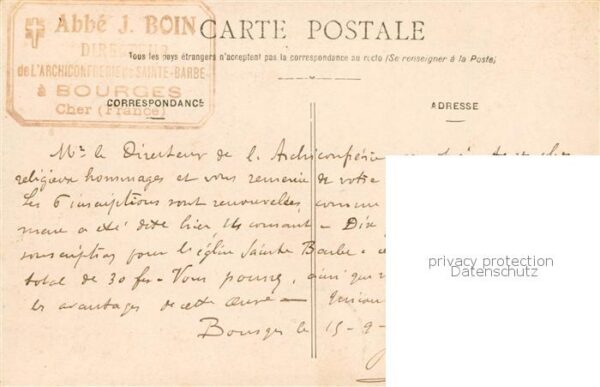 Abbé J. BOIN
DIRECTEUR
de L'ARCHICONFRÉRIE de SAINTE-BARBE
à BOURGES
Cher (France)
CARTE POSTALE
Tous les pays étrangers n'acceptent pas la correspondance au recto (Se renseigner à la Poste)
CORRESPONDANCE
ADRESSE
Mr le Directeur de l. Archiconfrérie
religieux hommages et vous remercie de votre
Les 6 inscriptions sont renouvelées, comme
a été dite hier, 14 courant — Dix
souscriptions pour l'église Sainte Barbe
total de 30 frs — Vous pouvez, ainsi que
les avantages de cette œuvre —
Bourges le 15-9-
privacy protection
Datenschutz